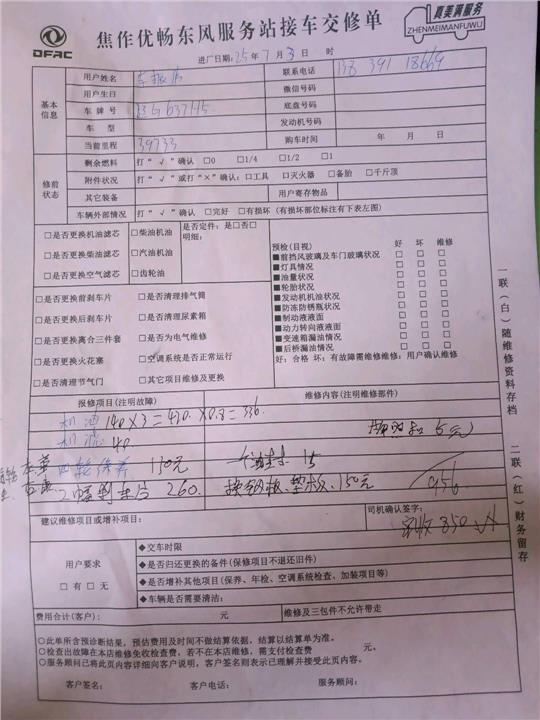 DFAC
焦作优畅东风服务站接车交修单
真美满服务
ZHENMEIMANFUWU
进厂日期:25年7月3日 时
基本信息
用户姓名 联系电话 138 391 18669
用户生日 微信号码
车牌号 底盘号码
车 型 发动机号码
当前里程 39733 购车时间 年 月 日
修前状态
剩余燃料 打“√”确认 □0 □1/4 □1/2 □1
附件状况 打“√”或打“×”确认:□工具 □灭火器 □备胎 □千斤顶
其它装备 用户寄存物品
车辆外部情况 打“√”确认 □完好 □有损坏 (有损坏部位标注有下表左图)
□是否更换机油滤芯 □柴油机油 是否定件:是□否□
□是否更换柴油滤芯 □汽油机油 明细:
□是否更换空气滤芯 □齿轮油
□是否更换前刹车片 □是否清理排气筒
□是否更换后刹车片 □是否清理尿素箱
□是否更换离合三件套 □是否为电气维修
□是否更换火花塞 □空调系统是否正常运行
□是否清理节气门 □其它项目维修及更换
预检(目视) 好 坏 维修
■前挡风玻璃及车门玻璃状况 □ □ □
■灯具情况 □ □ □
■油量状况 □ □ □
■轮胎状况 □ □ □
■发动机机油状况 □ □ □
■防冻防锈瓶状况 □ □ □
■制动液液面 □ □ □
■动力转向液液面 □ □ □
■变速箱漏油情况 □ □ □
■后桥漏油情况 □ □ □
好:合格 坏:有故障需维修维修:用户确认维修
报修项目(注明故障) 维修内容(注明维修部件)
机油 140×3=420.×0.8=336.
机滤 40
四轮保养 130元 15
刹车片 260. 150元
956
建议维修项目或增补项目: 司机确认签字:
实收850
用户要求
□有 □无
◆交车时限
◆是否归还更换的备件(保修项目不退还旧件)
◆是否增补其他项目(保养、年检、空调系统检查、加装项目等)
◆车辆是否需要清洁:
费用合计(客户): 元 维修及三包件不允许带走
○此单所含预诊断结果,预估费用及时间不做结算依据,结算以结算单为准。
○检查出故障在本店维修免收检查费,若不在本店维修,需支付检查费 元。
○服务顾问已将此页内容详细向客户说明,客户签名则表示已理解并接受此页内容。
客户签名: 客户电话: 服务顾问:
一联(白)随维修资料存档
二联(红)财务留存